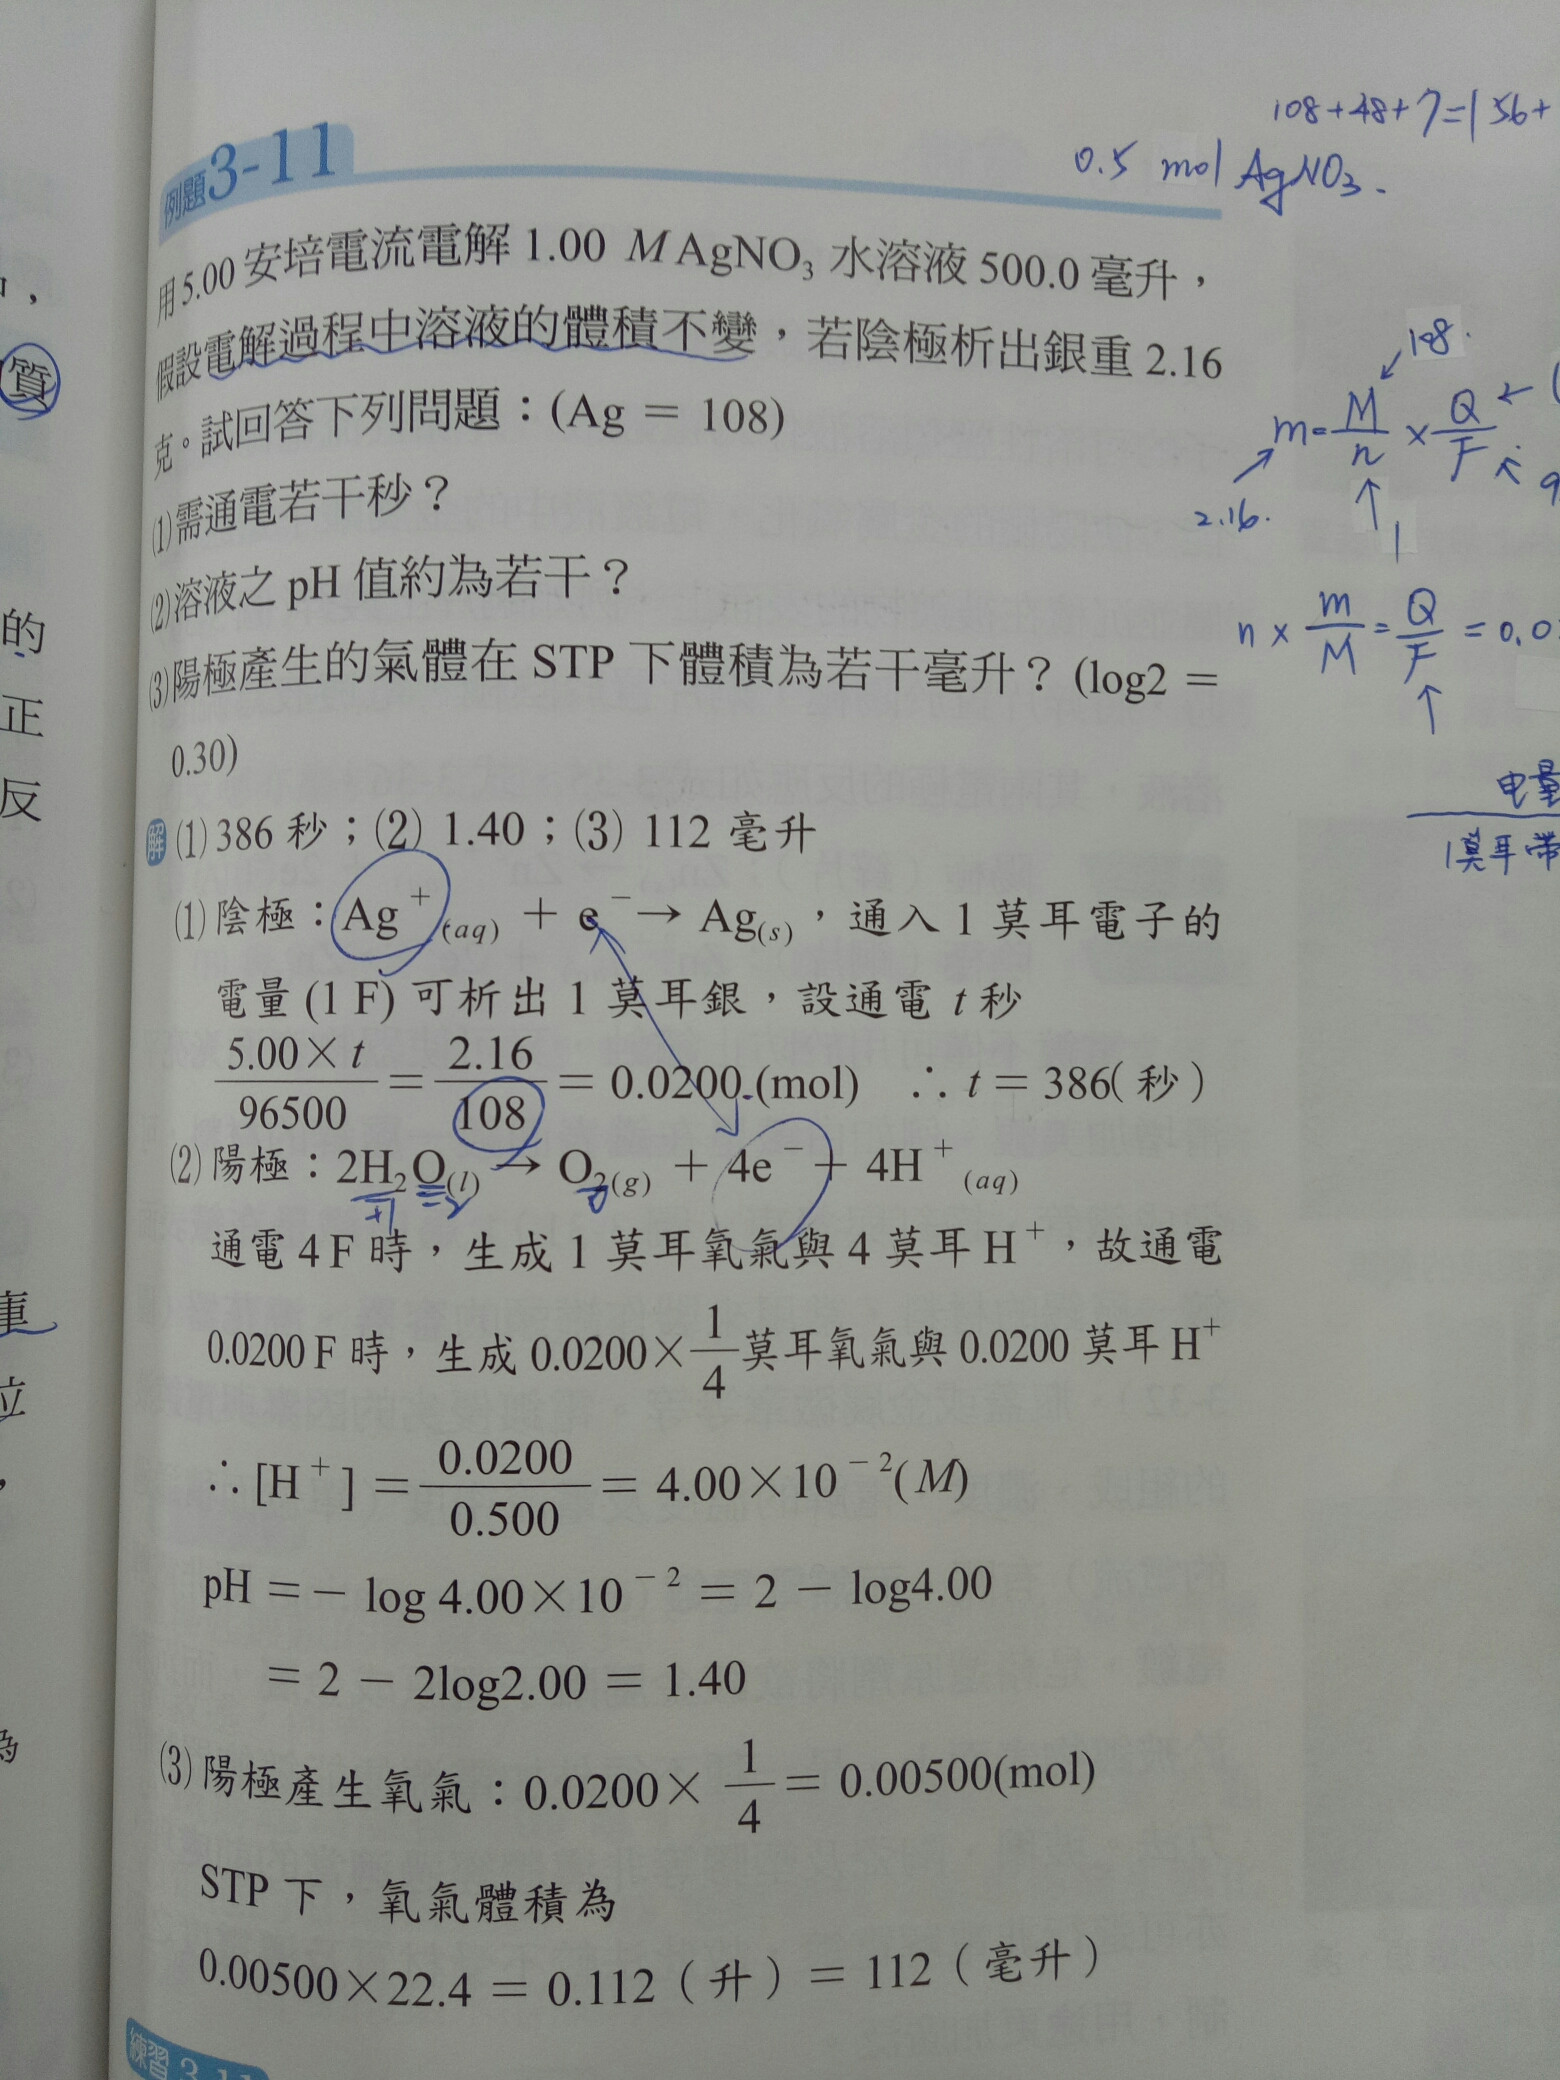 108+48+7=156+
0.5 mol AgNO₃.
例題3-11
用5.00安培電流電解1.00 M AgNO₃水溶液500.0毫升，
假設電解過程中溶液的體積不變，若陰極析出銀重2.16
克。試回答下列問題：(Ag = 108)
(1)需通電若干秒？
(2)溶液之pH值約為若干？
(3)陽極產生的氣體在STP下體積為若干毫升？(log2 =
0.30)
108.
m=M/n×Q/F
2.16.
1
9
n×m/M=Q/F=0.0
电量
1莫耳帶
解 (1) 386秒；(2) 1.40；(3) 112毫升
(1)陰極：Ag⁺(aq) + e⁻→ Ag(s)，通入1莫耳電子的
電量(1 F)可析出1莫耳銀，設通電 t 秒
5.00×t/96500 = 2.16/108 = 0.0200 (mol) ∴ t = 386(秒)
(2)陽極：2H₂O(l) → O₂(g) + 4e⁻ + 4H⁺(aq)
+1 -2 0
通電4 F時，生成1莫耳氧氣與4莫耳H⁺，故通電
0.0200 F時，生成0.0200×1/4莫耳氧氣與0.0200莫耳H⁺
∴ [H⁺] = 0.0200/0.500 = 4.00×10⁻²(M)
pH = − log 4.00×10⁻² = 2 − log4.00
= 2 − 2log2.00 = 1.40
(3)陽極產生氧氣：0.0200× 1/4 = 0.00500(mol)
STP下，氧氣體積為
0.00500×22.4 = 0.112（升）= 112（毫升）
練習3-11
，
質
的
正
反
重
位
，
為